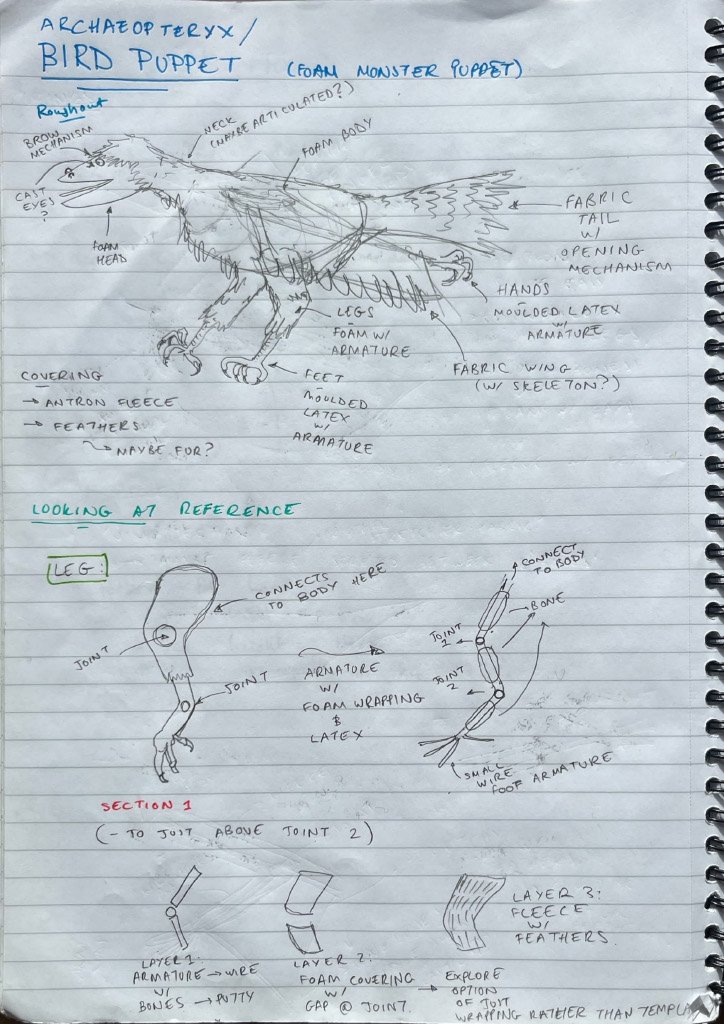 ARCHAEOPTERYX/
BIRD PUPPET
(FOAM MONSTER PUPPET)
Roughout
BROW
MECHANISM
NECK
(MAYBE ARTICULATED?)
FOAM BODY
CAST
EYES
?
FOAM
HEAD
FABRIC
TAIL
W/
OPENING
MECHANISM
HANDS
-
MOULDED LATEX
W/
ARMATURE
LEGS
-
FOAM W/
ARMATURE
FABRIC WING
(W/ SKELETON?)
FEET
-
MOULDED
LATEX
W/
ARMATURE
COVERING
→ ANTRON FLEECE
→ FEATHERS
MAYBE FUR?
LOOKING AT REFERENCE
LEG:
CONNECTS
TO BODY HERE
JOINT
JOINT
ARMATURE
W/
FOAM WRAPPING
&
LATEX
CONNECT
TO BODY
BONE
JOINT
1
JOINT
2
SMALL
WIRE
FOOT ARMATURE
SECTION 1
(- TO JUST ABOVE JOINT 2)
LAYER 1:
ARMATURE → WIRE
W/
BONES → PUTTY
LAYER 2:
FOAM COVERING
W/
GAP @ JOINT.
LAYER 3:
FLEECE
W/
FEATHERS.
→ EXPLORE
OPTION
OF JUST
WRAPPING RATHER THAN TEMPLA